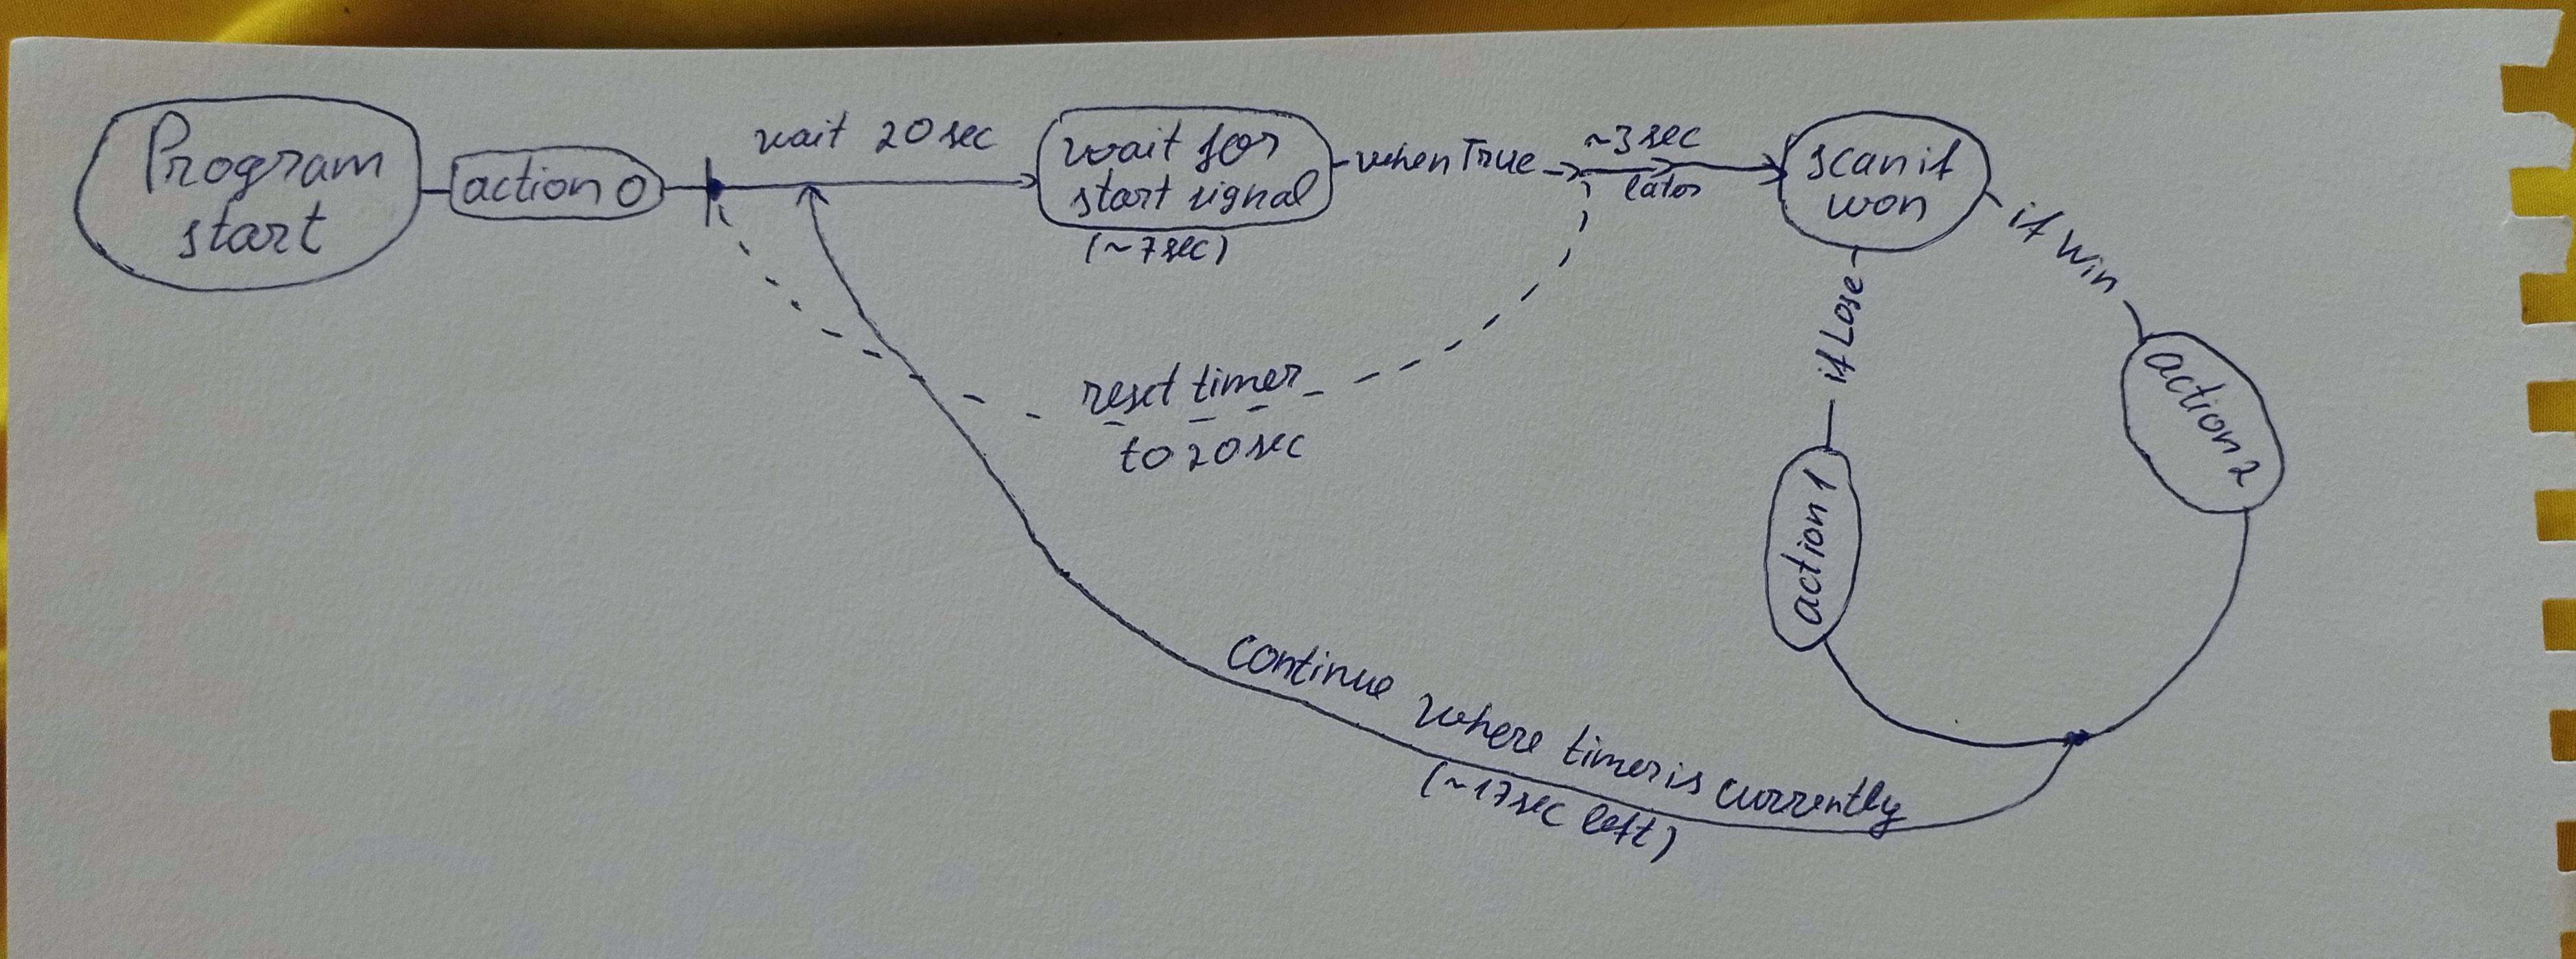 Program
start
action 0
wait 20 sec
wait for
start signal
(~7sec)
when True
~3 sec
later
scan if
won
if Win
if Lose
action 2
action 1
reset timer
to 20 sec
continue where timer is currently
(~17sec left)